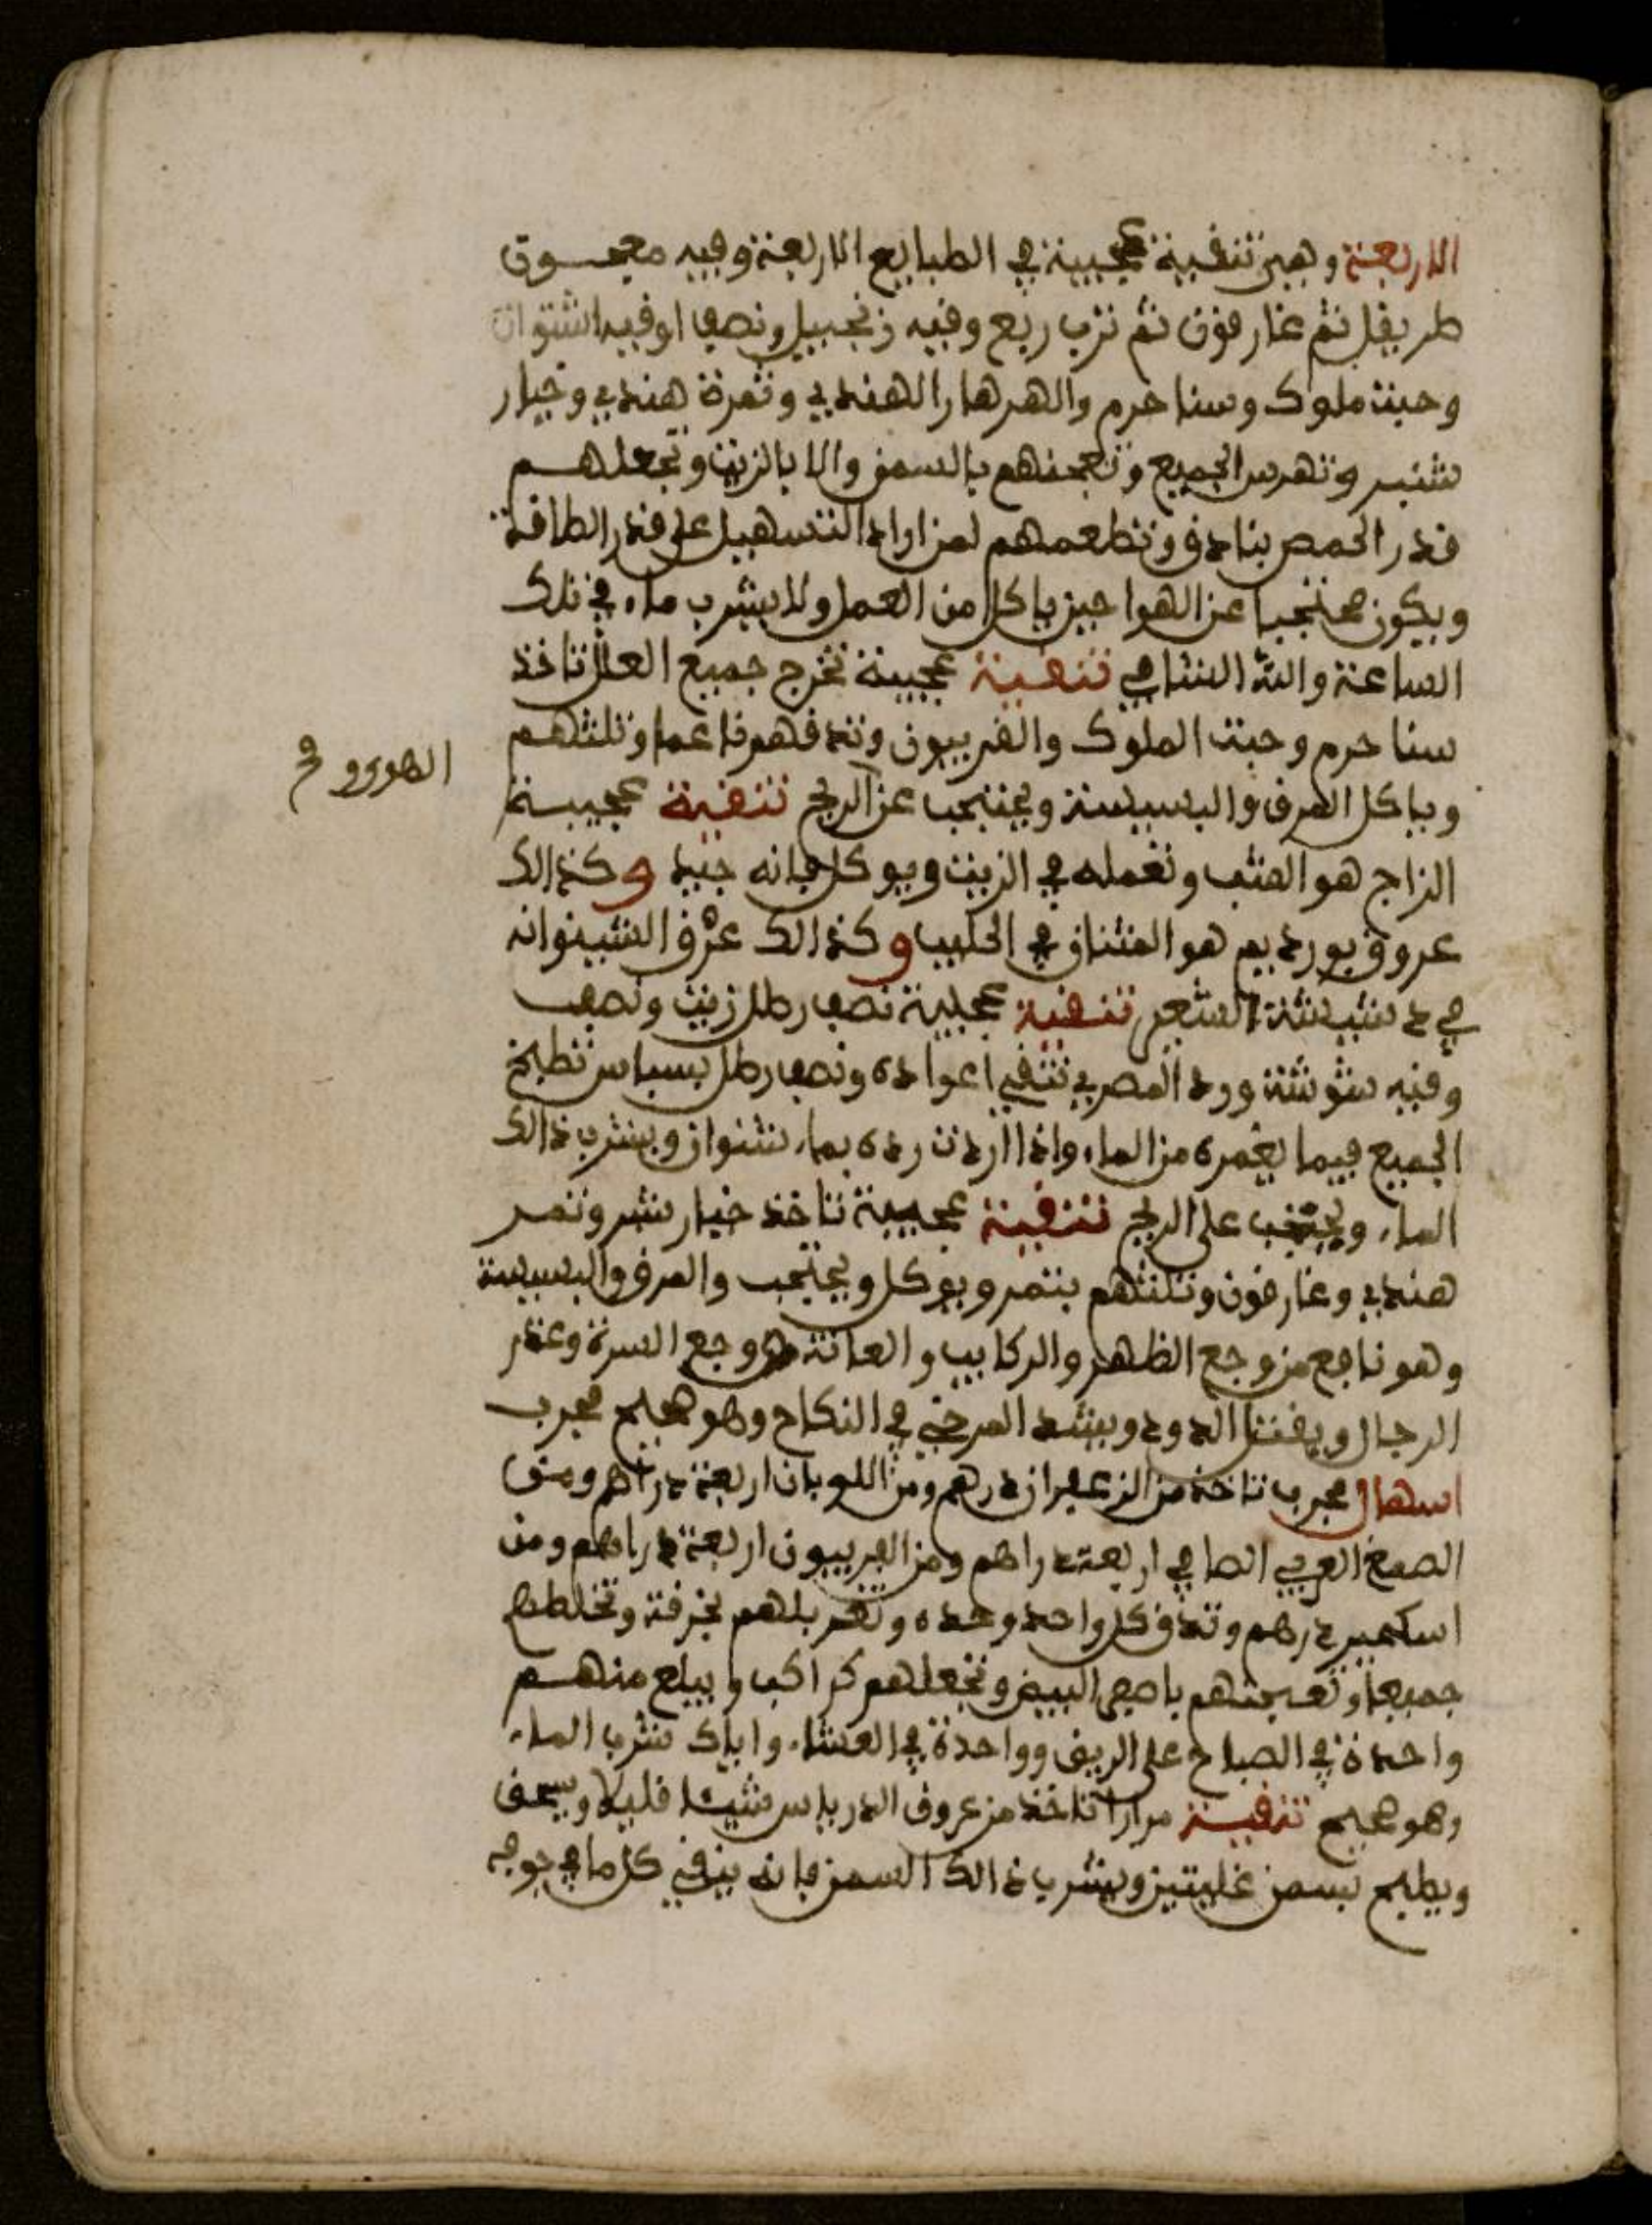 الاربعة وهي تنقية عجيبة في الطبايع الاربعة وقيه معجون
طريقل ثم غارقون ثم ترب ربع وقيه زنجبيل ونصف اوقيه اشتوان
وحبت ملوك وسنا حرم والهرهار الهندي وتمرة هندي وخيار
شنبر وتهرس الجميع وتعجنهم بالسمن والا بالزيت وتجعلهم
قدر الحمص بنادق وتطعمهم لمن اراد التسهيل على قدر الطاقة
ويكون محتجبا عن الهوا حين ياكل من العمل ولا يشرب ماء في تلك
الساعة والله الشافي تنقية عجيبة تخرج جميع العلل تاخذ
سنا حرم وحبت الملوك والفربيون وتدقهم ناعما وتلثهم
وياكل المرق والبسيسة ويحتجب عن الريح تنقية عجيبة
الزاج هو الشب وتعمله في الزيت ويوكل فانه جيد وكذالك
عروق بوردييم هو المشاق في الحليب وكذالك عرق الشينوانه
في دشيشة الشعير تنقية عجيبة نصف رطل زيت ونصف
وقيه شوشة وورد المصري تنقي اعواده ونصف رطل بسباس تطبخ
الجميع فيما يغمره من الماء واذا اردت رده بماء شنوان ويشرب ذالك
الماء ويحتجب على الريح تنقية عجيبة تاخذ خيار شنبر وتمر
هندي وغارقون وتلثهم بتمر ويوكل ويحتجب والمرق والبسيسة
وهو نافع من وجع الظهر والركايب والعانة ووجع السرة وعقر
الرجال ويقتل الدود ويشد المرخي في النكاح وهو صحيح مجرب
اسهال مجرب تاخذ من الزعفران درهم ومن اللوبان اربعة دراهم ومن
الصمغ العربي الصافي اربعة دراهم ومن الفربيون اربعة دراهم ومن
درهم وتدق كل واحد وحده وتغربلهم بخرقة وتخلطهم
جميعا وتعجنهم باصفر البيض وتجعلهم كراكب ويبلع منهم
واحدة في الصباح على الريق وواحدة في العشاء واياك شرب الماء
وهو صحيح تنقية مرارا تاخذ من عروق الدرياس شيئا قليلا ويسحق
ويطبخ بسمن غليتين ويشرب ذالك السمن فانه ينقي كل ما في جوفه